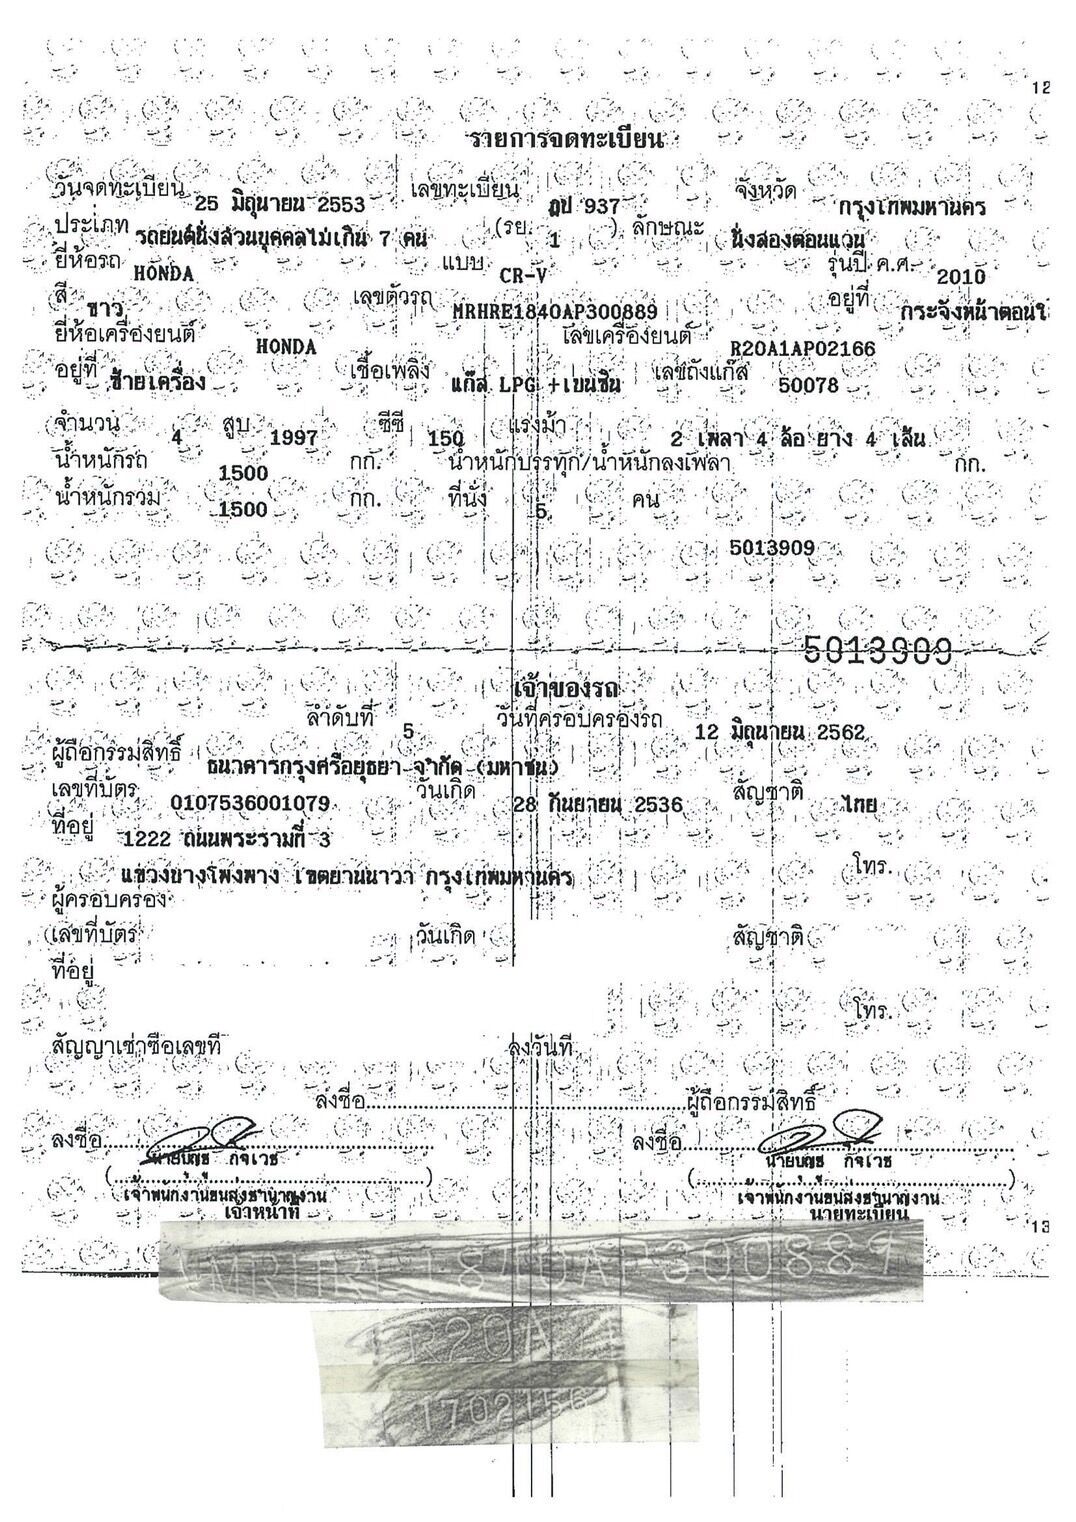 12
รายการจดทะเบียน
วันจดทะเบียน 25 มิถุนายน 2553 เลขทะเบียน ฎป 937 จังหวัด กรุงเทพมหานคร
ประเภท รถยนต์นั่งส่วนบุคคลไม่เกิน 7 คน (รย. 1 ) ลักษณะ นั่งสองตอนแวน
ยี่ห้อรถ HONDA แบบ CR-V รุ่นปี ค.ศ. 2010
สี ขาว เลขตัวรถ MRHRE1840AP300889 อยู่ที่ กระจังหน้าตอนใ
ยี่ห้อเครื่องยนต์ HONDA เลขเครื่องยนต์ R20A1AP02166
อยู่ที่ ซ้ายเครื่อง เชื้อเพลิง แก๊ส LPG +เบนซิน เลขถังแก๊ส 50078
จำนวน 4 สูบ 1997 ซีซี 150 แรงม้า 2 เพลา 4 ล้อ ยาง 4 เส้น
น้ำหนักรถ 1500 กก. น้ำหนักบรรทุก/น้ำหนักลงเพลา กก.
น้ำหนักรวม 1500 กก. ที่นั่ง 5 คน
5013909
5013909
เจ้าของรถ
ลำดับที่ 5 วันที่ครอบครองรถ 12 มิถุนายน 2562
ผู้ถือกรรมสิทธิ์ ธนาคารกรุงศรีอยุธยา จำกัด (มหาชน)
เลขที่บัตร 0107536001079 วันเกิด 28 กันยายน 2536 สัญชาติ ไทย
ที่อยู่ 1222 ถนนพระรามที่ 3
แขวงบางโพงพาง เขตยานนาวา กรุงเทพมหานคร โทร.
ผู้ครอบครอง
เลขที่บัตร วันเกิด สัญชาติ
ที่อยู่
โทร.
สัญญาเช่าซื้อเลขที่ ลงวันที่
ลงชื่อ ผู้ถือกรรมสิทธิ์
ลงชื่อ ลงชื่อ
กิจเวช กิจเวช
เจ้าพนักงานขนส่งชำนาญงาน เจ้าพนักงานขนส่งชำนาญงาน
เจ้าหน้าที่ นายทะเบียน
13
MRHRE1840AP300889
R20A